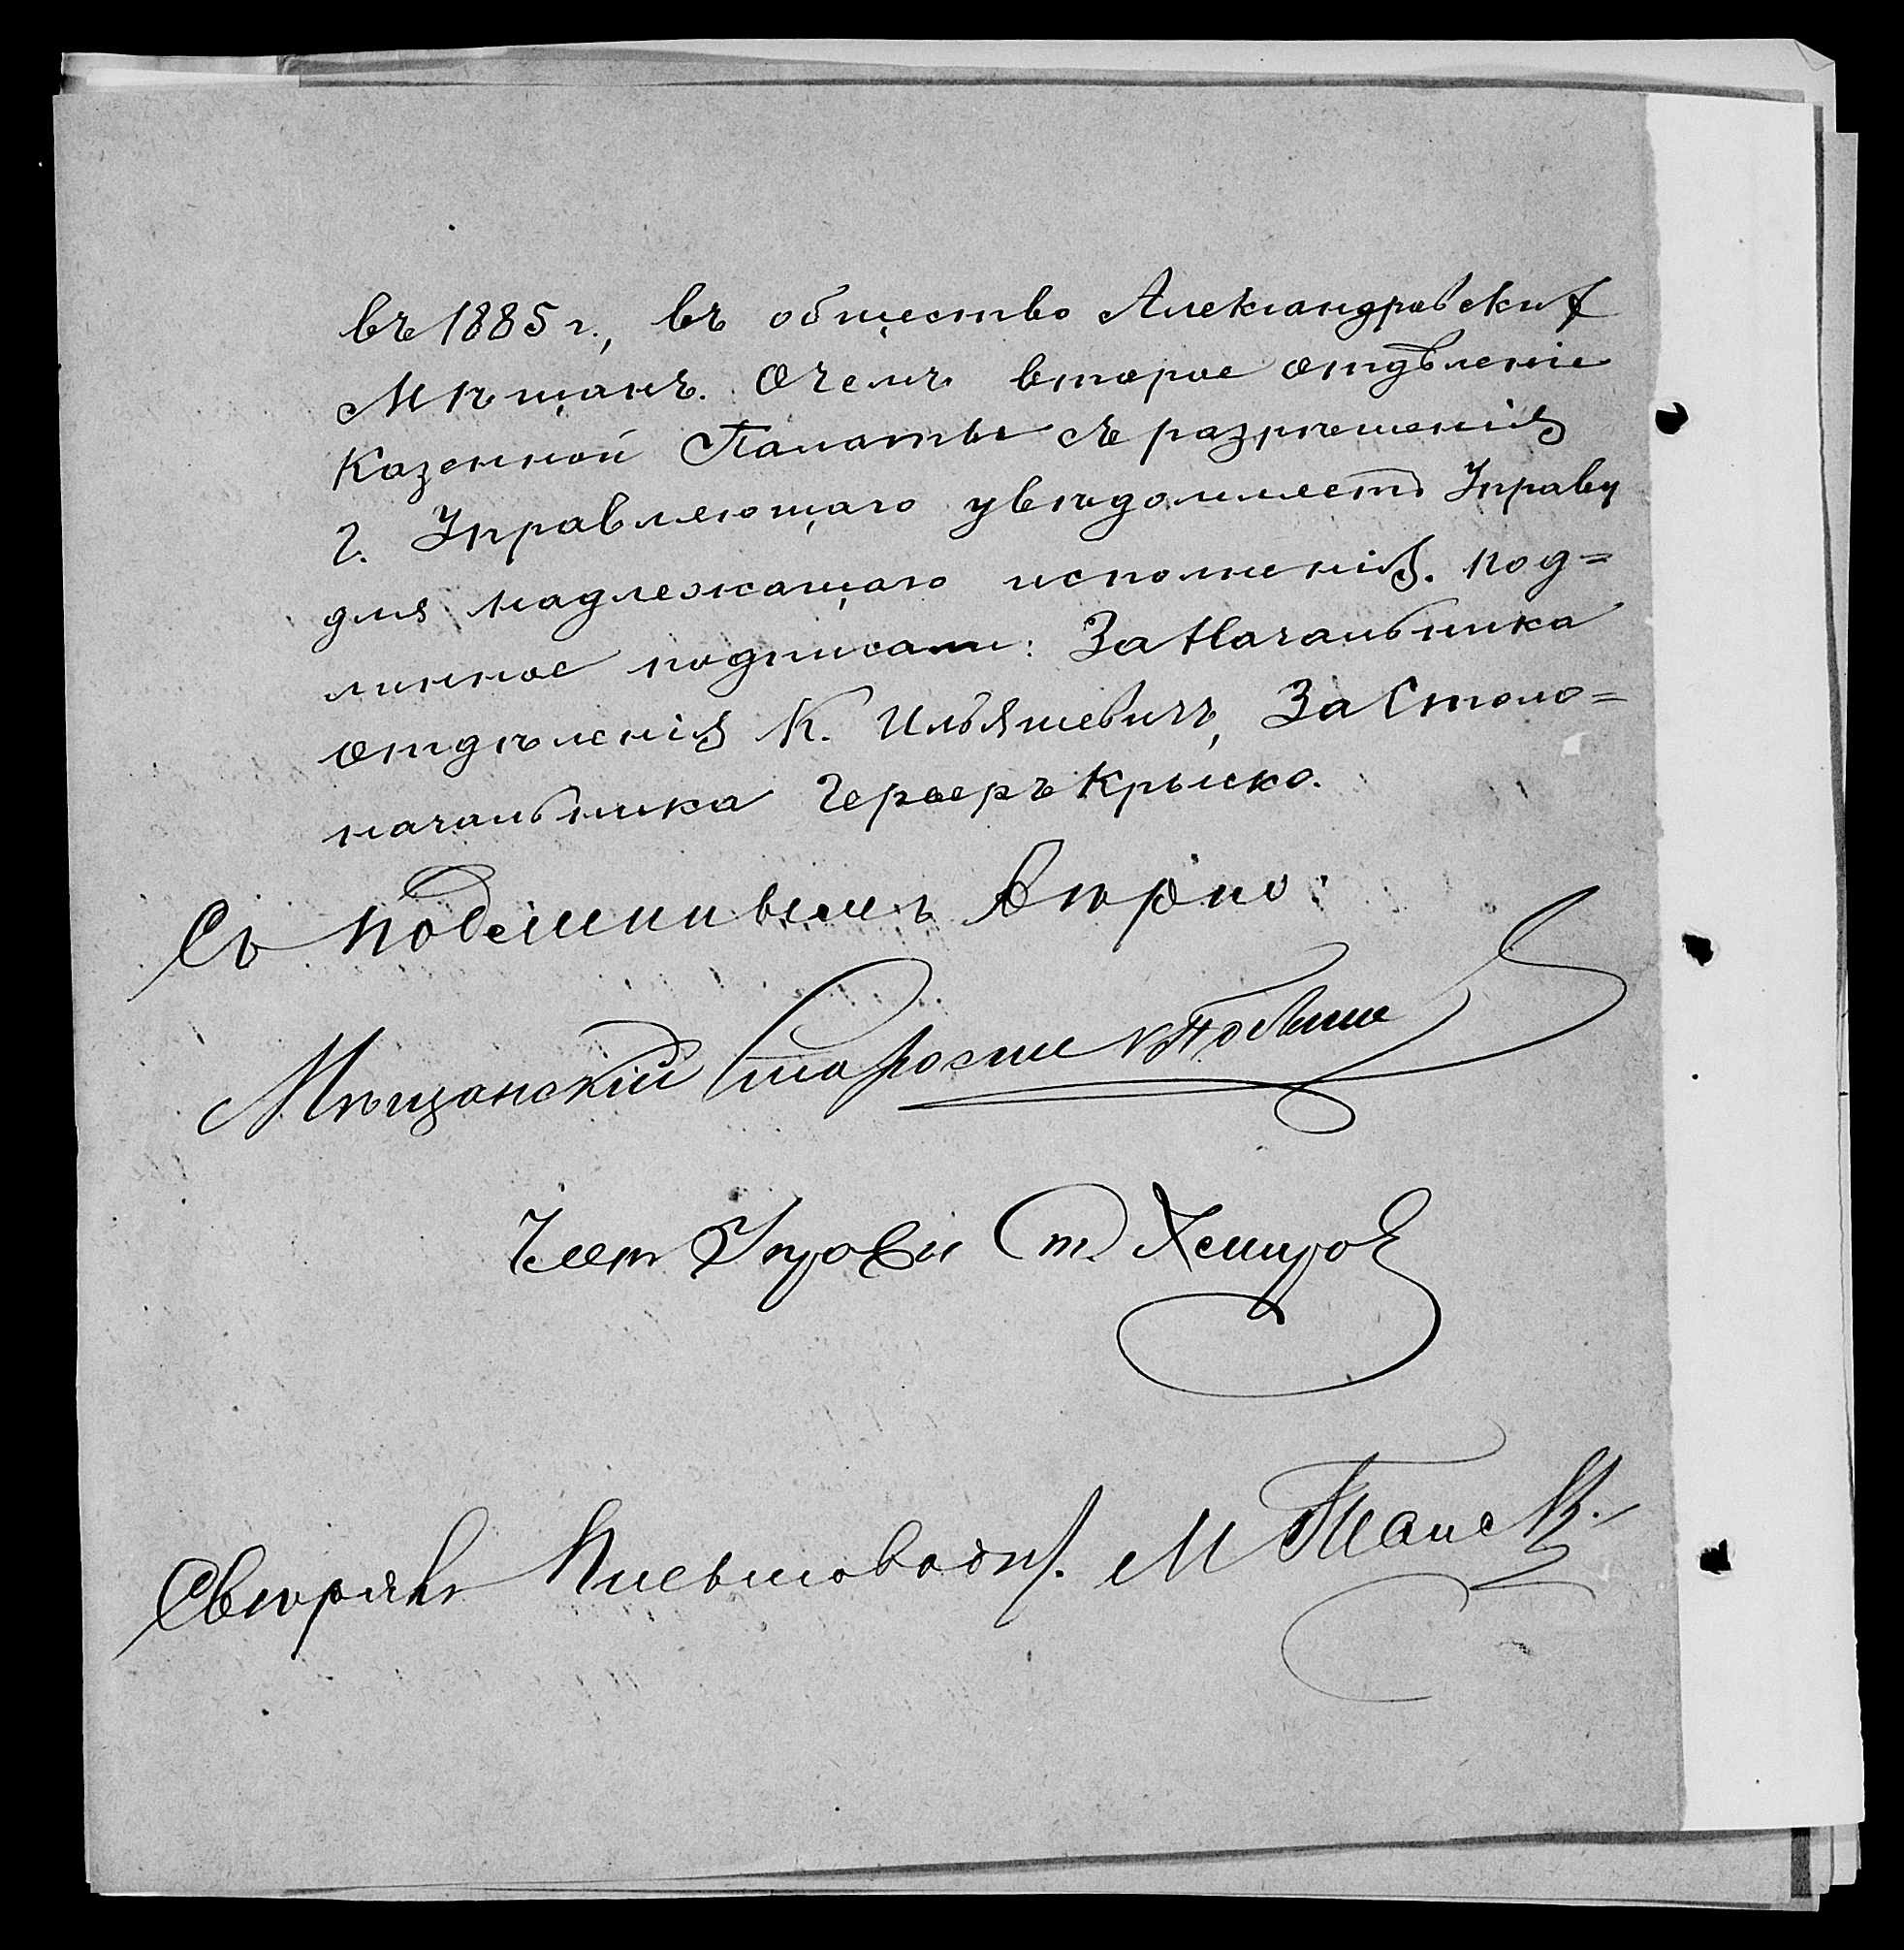 въ 1885 г., въ общество Александровских
Мѣщанъ. О чемъ второе отдѣленіе
Казенной Палаты съ разрѣшенія
г. Управляющаго увѣдомляетъ Управу
для надлежащаго исполненія. Под=
линное подписали: За Начальника
отдѣленія К. Ильяшевичъ, За Столо=
начальника Крыско.
Съ подлиннымъ вѣрно:
Мѣщанскій Староста
Член Управы
Свѣрялъ Письмовод.